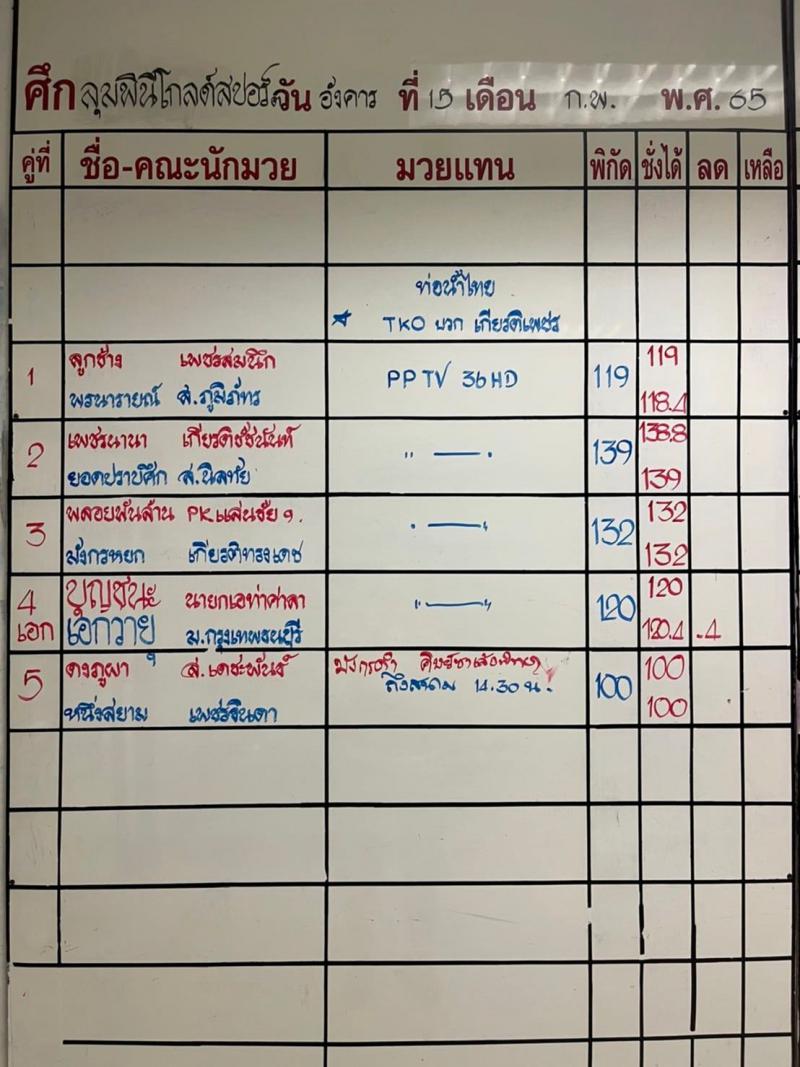 ศึก ลุมพินีโกลด์สปอร์ต วัน อังคาร ที่ 15 เดือน ก.พ. พ.ศ. 65
คู่ที่ ชื่อ-คณะนักมวย มวยแทน พิกัด ชั่งได้ ลด เหลือ
ท่อน้ำไทย
TKO บวก เกียรติเพชร
1 ลูกช้าง เพชรสมนึก PPTV 36HD 119 119
พรนารายณ์ ส.ภูมิภัทร 118.4
2 เพชรนานา เกียรติชัชนันท์ " — " 139 138.8
ยอดปราบศึก 139
3 พลอยพันล้าน PKแสนชัยฯ. " — " 132 132
มังกรหยก เกียรติทรงเดช 132
4 บุญชนะ นายกเอท่าศาลา " — " 120 120
เอก เอกวายุ ม.กรุงเทพธนบุรี 120.4 .4
5 ดงภูผา ส.เดชะพันธ์ 100 100
ถึงสนาม 14.30 น.
หนึ่งสยาม เพชรจินดา 100